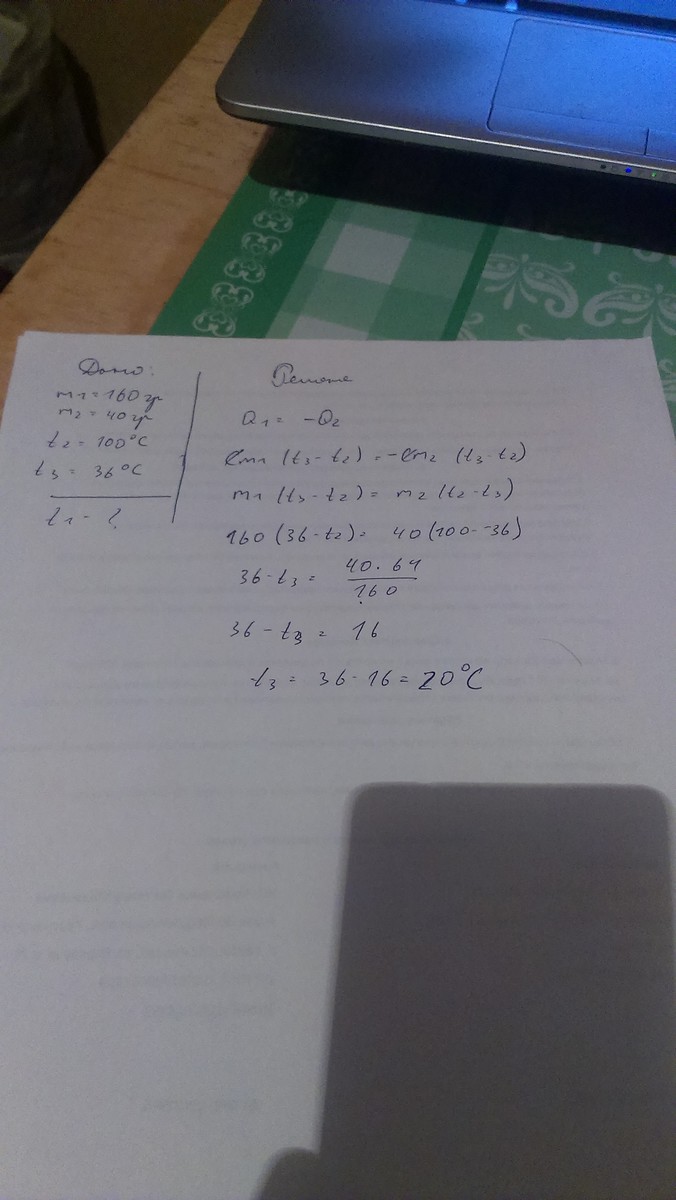 Дано:
m1 = 160 гр
m2 = 40 гр
t2 = 100°C
t3 = 36°C
t1 - ?
Решение
Q1 = -Q2
cm1 (t3 - t2) = -cm2 (t3 - t2)
m1 (t3 - t2) = m2 (t2 - t3)
160 (36 - t2) = 40 (100 - 36)
36 - t3 = 40 · 64 / 160
36 - t3 = 16
t3 = 36 - 16 = 20°C